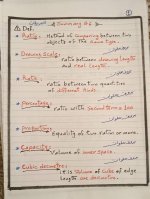 Summary G6
Def.
Ratio: Method of Comparing between two objects of the same type.
Drawing Scale: ratio between drawing length and real length.
Rate: Ratio between two quantities of different kinds.
Percentage: ratio with Second term = 100
Proportion: Equality of two ratios or more.
Capacity: Volume of inner space.
Cubic decimetre: it is Volume of Cube of edge length one decimetre.